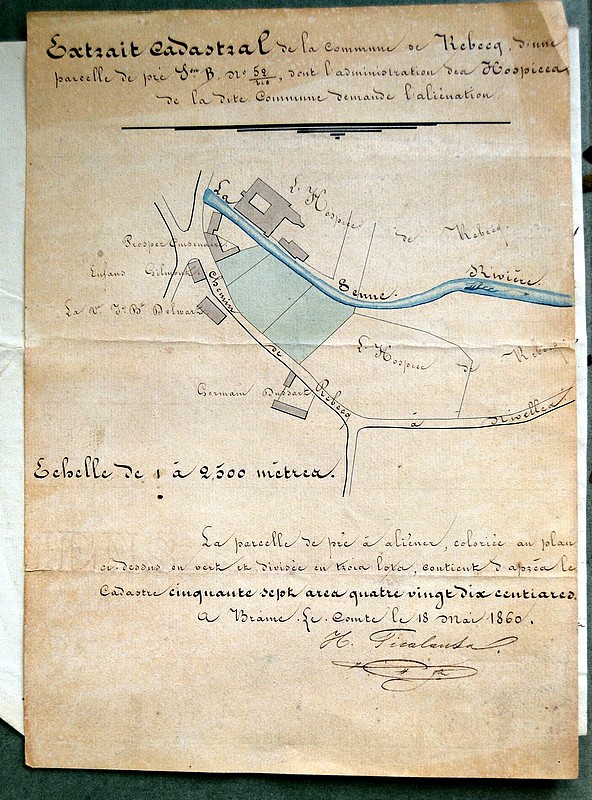 Extrait Cadastral de la Commune de Rebecq, d'une
parcelle de pré S.on B. n.o 58/210, dont l'administration des Hospices
de la dite Commune demande l'aliénation
La Senne Rivière.
L'Hospice de Rebecq.
Prosper
Enfans Gilmont
La V.e J. B.te Delwart
Chemin de Rebecq à Nivelles
L'Hospice de Rebecq
Germain
Echelle de 1 à 2,500 mètres.
La parcelle de pré à aliéner, coloriée au plan
ci-dessus en vert et divisée en trois lots, contient d'après le
Cadastre cinquante sept ares quatre vingt dix centiares.
A Braine-Le-Comte le 18 Mai 1860.